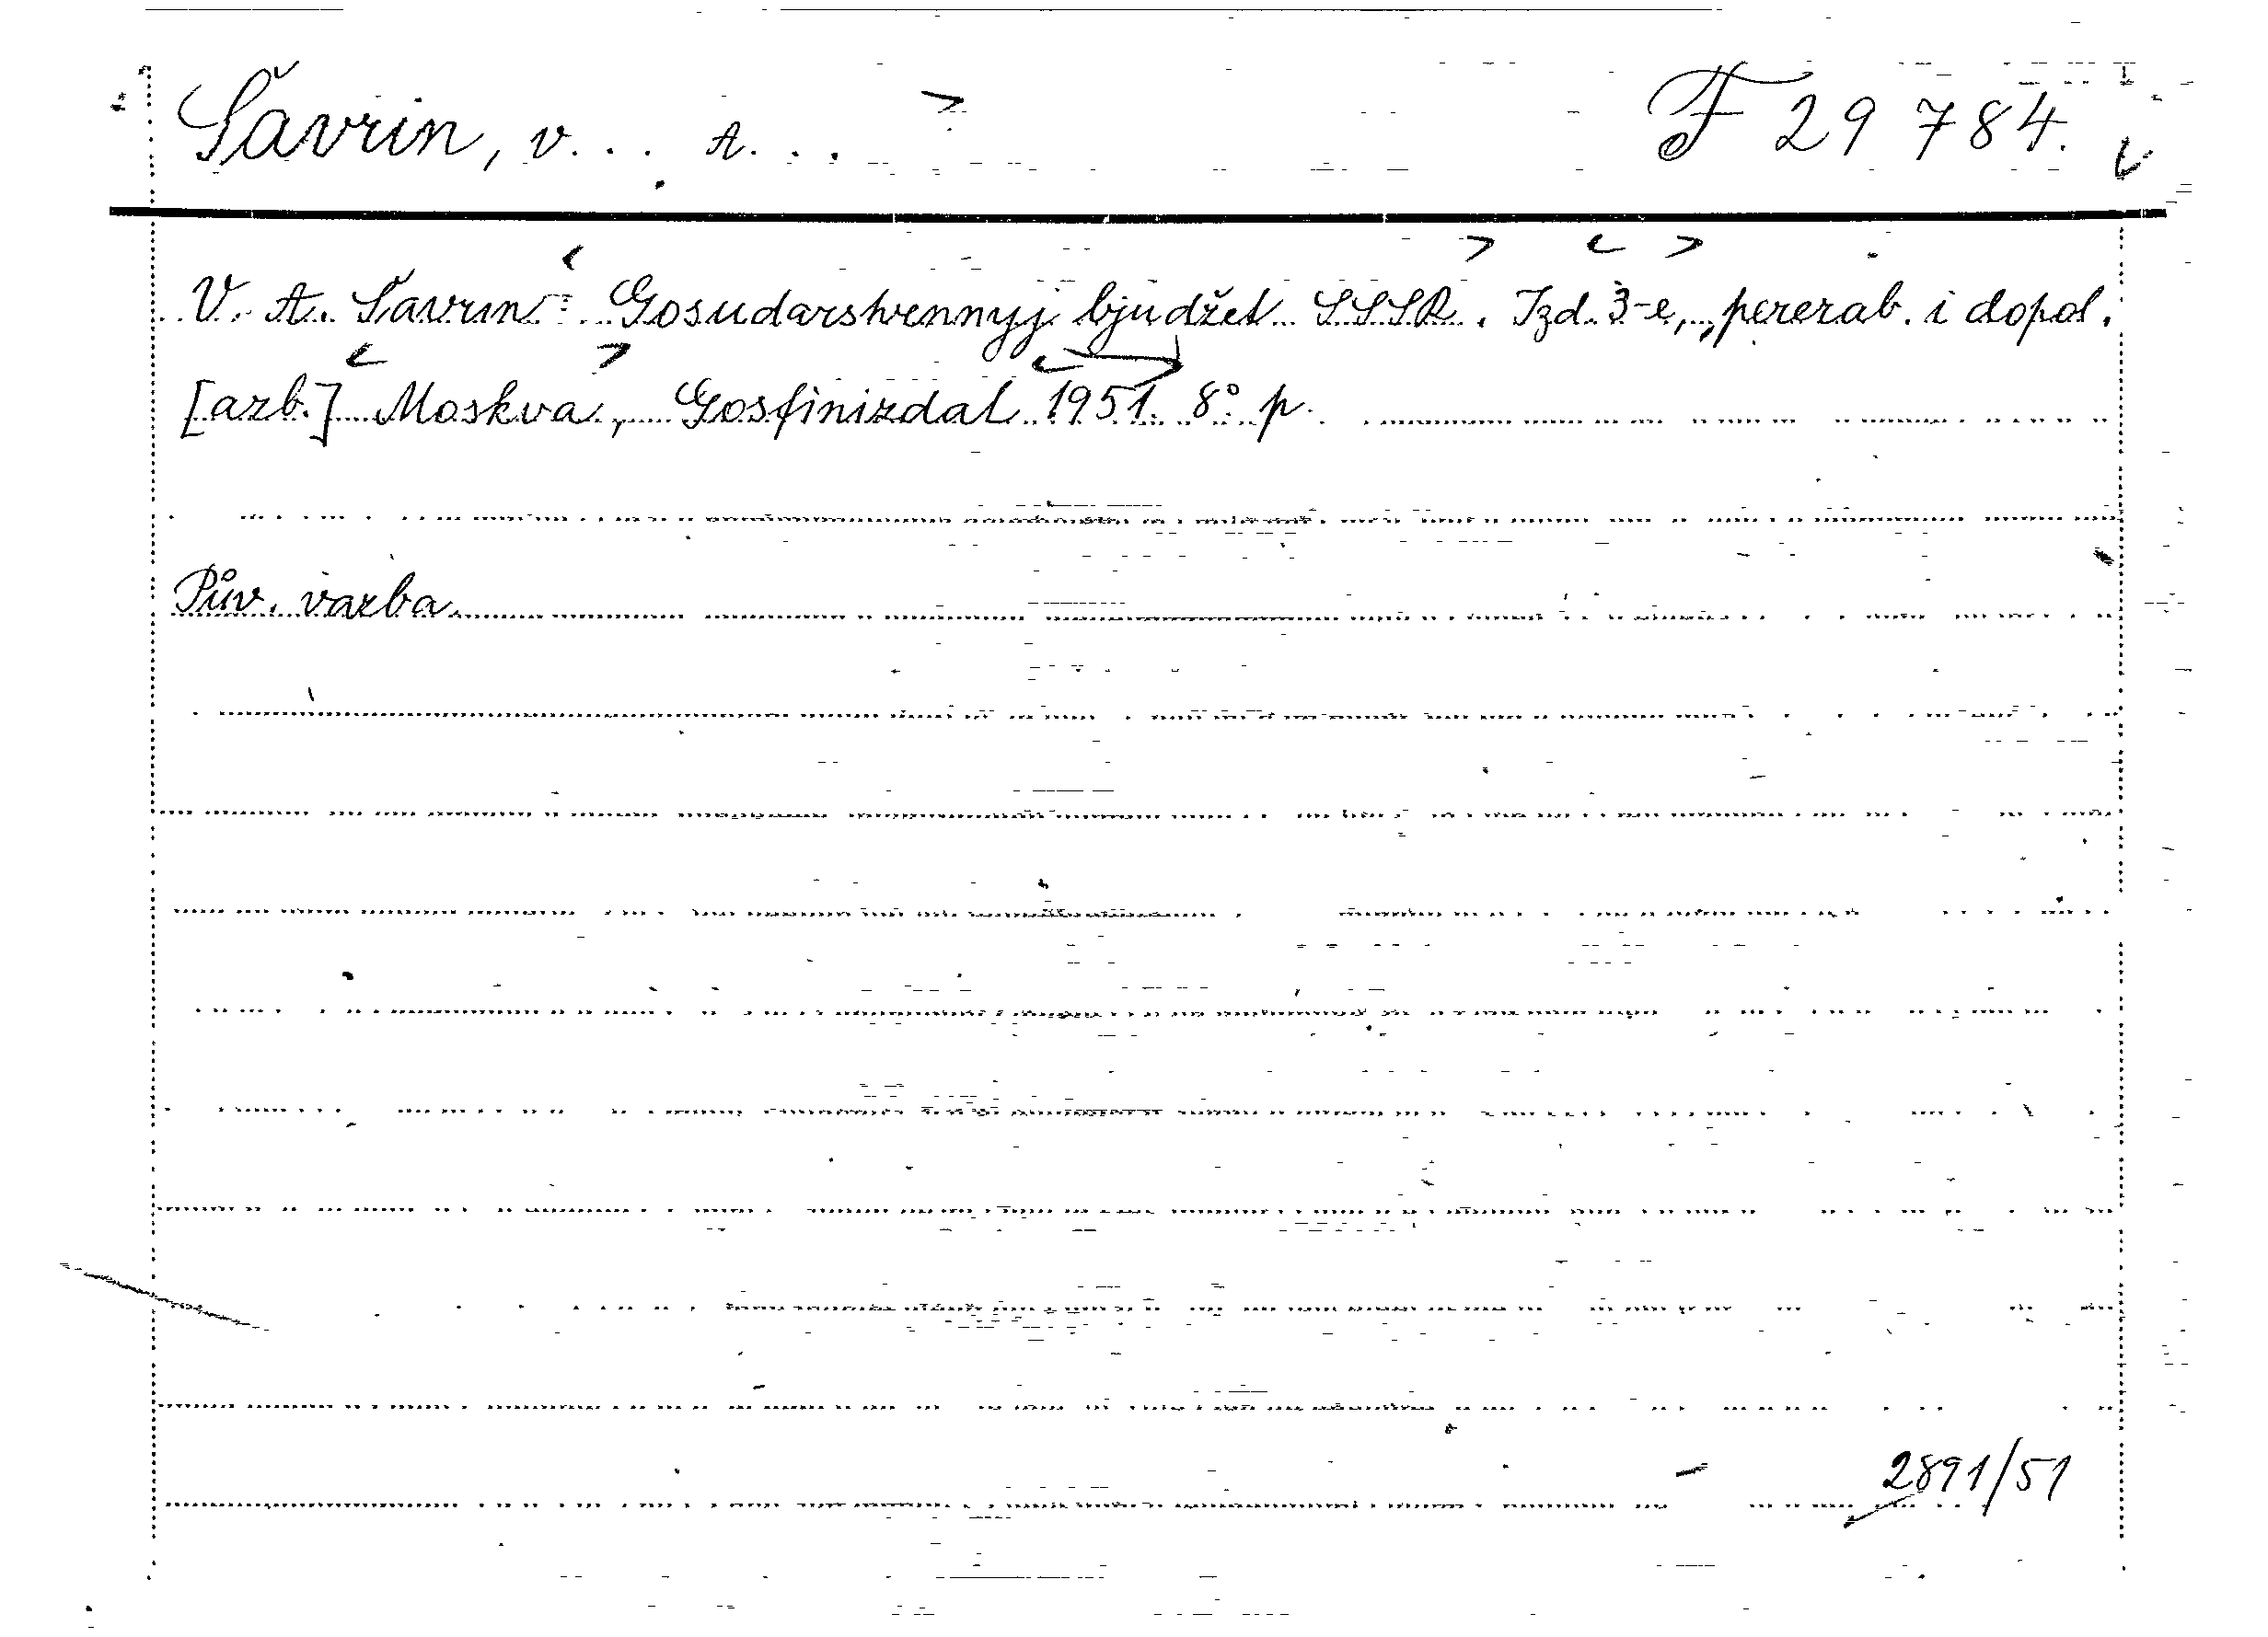 Šavrin, V... A... F 29 784.
V. A. Šavrin: Gosudarstvennyj bjudžet SSSR. Izd. 3-e, pererab. i dopol.
[azb.] Moskva, Gosfinizdat 1951. 8° p.
Pův. vazba.
2891/51